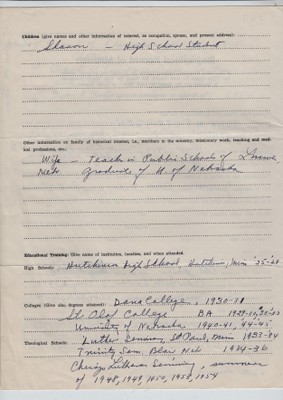 Children (give names and other information of interest, as occupation, spouse, and present address):
Sharon – High School Student
Other information on family of historical interest, i.e., members in the ministry, missionary work, teaching and medical professions, etc.:
Wife – Teacher in Public Schools of
Nebr. Graduate of U. of Nebraska
Educational Training: (Give name of institution, location, and when attended.
High Schools: Hutchinson High School, Hutchinson, Minn '25-28
Colleges (Give also degrees attained): Dana College, 1930-31
St. Olaf College BA
University of Nebraska 1940-41, '44-45
Theological Schools: Luther Seminary, St. Paul, Minn 1933-34
Trinity Sem. Blair Neb 1934-36
Chicago Lutheran Seminary, summers
of 1948, 1949, 1950, 1953, 1954